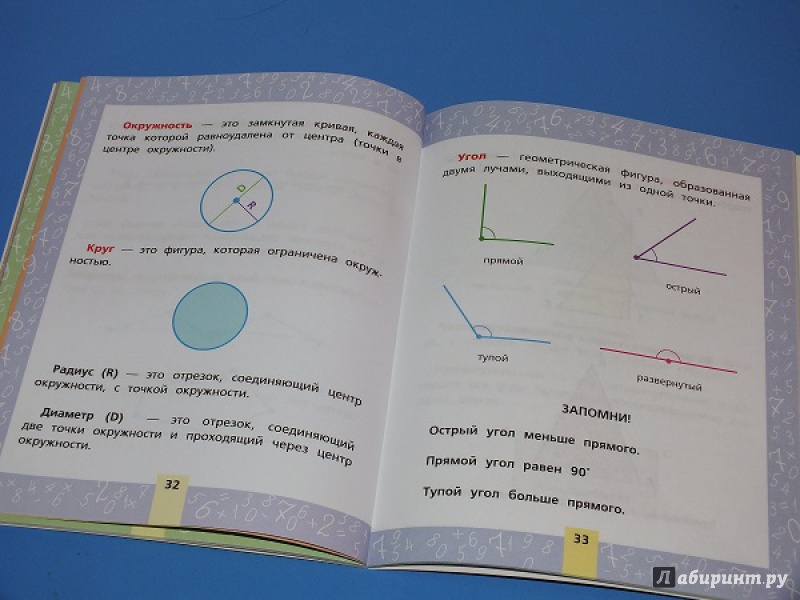 Окружность — это замкнутая кривая, каждая
точка которой равноудалена от центра (точки в
центре окружности).
D
R
Круг — это фигура, которая ограничена окруж-
ностью.
Радиус (R) — это отрезок, соединяющий центр
окружности, с точкой окружности.
Диаметр (D) — это отрезок, соединяющий
две точки окружности и проходящий через центр
окружности.
32
Угол — геометрическая фигура, образованная
двумя лучами, выходящими из одной точки.
прямой
острый
тупой
развернутый
ЗАПОМНИ!
Острый угол меньше прямого.
Прямой угол равен 90°
Тупой угол больше прямого.
33
Лабиринт.ру